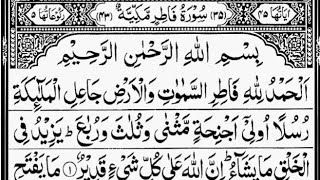 اٰيَاتُهَا ٤٥ (٣٥) سُوْرَةُ فَاطِرٍ مَّكِّيَّةٌ (٤٣) رُكُوْعَاتُهَا ٥
بِسْمِ اللّٰهِ الرَّحْمٰنِ الرَّحِيْمِ
اَلْحَمْدُ لِلّٰهِ فَاطِرِ السَّمٰوٰتِ وَالْاَرْضِ جَاعِلِ الْمَلٰٓئِكَةِ
رُسُلًا اُولِيْٓ اَجْنِحَةٍ مَّثْنٰى وَثُلٰثَ وَرُبٰعَ ؕ يَزِيْدُ فِي
الْخَلْقِ مَا يَشَآءُ ؕ اِنَّ اللّٰهَ عَلٰى كُلِّ شَيْءٍ قَدِيْرٌ ۝۱ مَا يَفْتَحِ